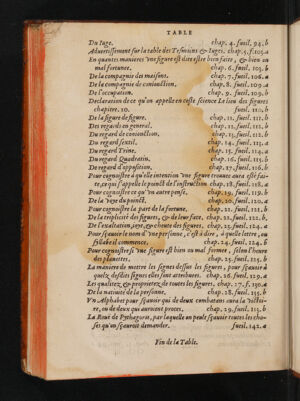 TABLE
Du Iuge. chap. 4. fueil. 94. b
Aduertissement sur la table des Tesmoins & Iuges. chap. 5. f. 105. a
En quantes manieres vne figure est dite estre bien faite, & bien ou
mal fortunee. chap. 6. fueil. 105. b
De la compagnie des maisons. chap. 7. fueil. 106. a
De la compagnie de conionction. chap. 8. fueil. 109. a
De l'occupation. chap. 9. fueil. 109. b
Declaration de ce qu'on appelle en ceste science Le lieu des figures
chapitre. 10. fueil. 110. b
De la figure de figure. chap. 11. fueil. 111. b
Des regards en general. chap. 12. fueil. 112. b
Du regard de conionction. chap. 13. fueil. 112. b
Du regard sextil. chap. 14. fueil. 113. a
Du regard Trine. chap. 15. fueil. 114. b
Du regard Quadratin. chap. 16. fueil. 115. b
Du regard d'opposition. chap. 17. fueil. 116. b
Pour cognoistre à qu'elle intention vne figure trouuee aura esté fai-
te, ce qui s'appelle le poinct de l'instruction. chap. 18. fueil. 118. a
Pour cognoistre ce que l'on aura pensé. chap. 19. fueil. 119. b
De la voye du poinct. chap. 20. fueil. 121. a
Pour cognoistre la part de la fortune. chap. 21. fueil. 121. b
De la triplicité des figures, & de leur face. chap. 22. fueil. 122. b
De l'exaltation, ioye, & cheute des figures. chap. 23. fueil. 123. a
Pour sçauoir le nom d'vne personne, c'est à dire, à quelle lettre, ou
syllabe il commence. chap. 24. fueil. 124. b
Pour cognoistre si vne figure est bien ou mal formee, selon l'heure
des planettes. chap. 25. fueil. 125. b
La maniere de mettre les signes dessus les figures, pour sçauoir à
quelz desdits signes elles sont attribuees. chap. 26. fueil. 129. a
Les qualitez & proprietez de toutes les figures. chap. 27. f. 130. a
De la natiuité de la personne. chap. 28. fueil. 135. b
Vn Alphabet pour sçauoir qui de deux combatans aura la victoi-
re, ou de deux qui auront procés. chap. 29. fueil. 135. b
La Rouë de Pythagoras, par laquelle on peult sçauoir toutes les cho-
ses qu'on sçauroit demander. fueil. 142. a
Fin de la Table.